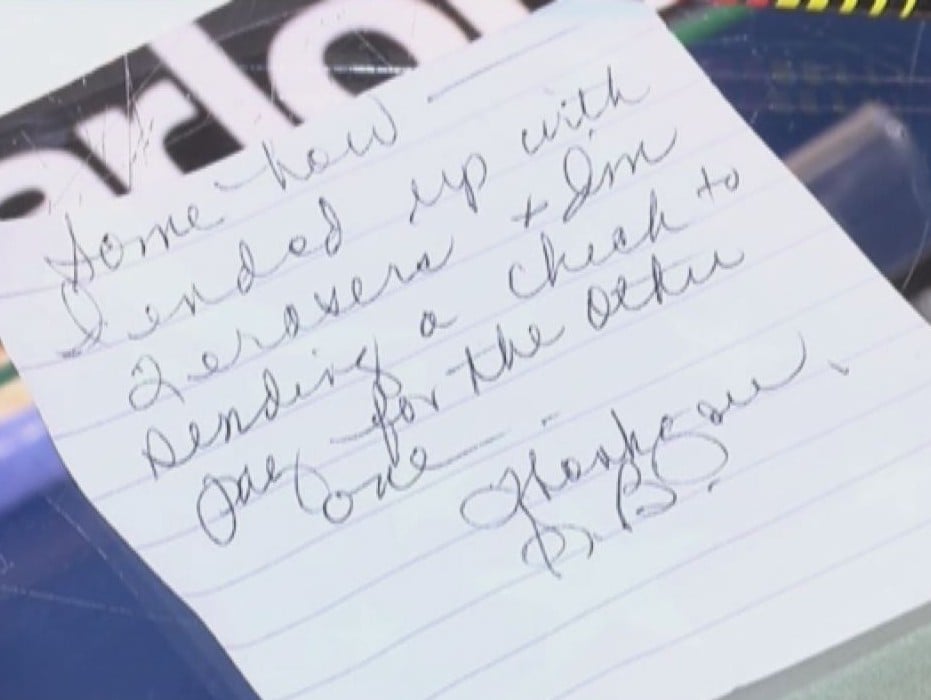 arlo
Some how —
I ended up with
2 erasers + Im
sending a check to
pay for the other
one —.
Thank you,
B.